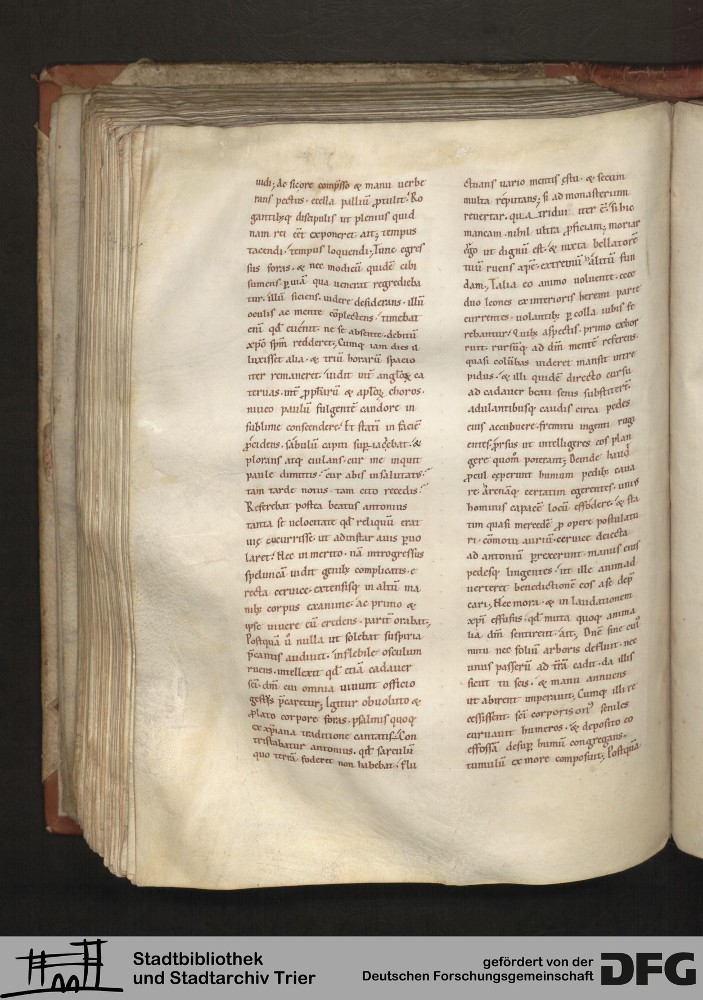 uidi; Ac sicore comp̃sso & manu uerbe
rans pectus. ecella palliũ ꝓtulit. Ro
gantibꝫq discipulis ut plenius quid
nam rei eẽt exponeret. ait; tempus
tacendi. tempus loquendi; Tunc egres
sus foras. & nec modicũ quidẽ cibi
sumens. p̱ uiã qua uenerat regredieba
tur. illũ siciens. uidere desiderans. illũ
oculis ac mente cõplectens. timebat
eni̅ qd̅ euẽnit. ne se absente. debitũ
xp̅o sp̅m redderet; Cumq iam dies il
luxisset alia. & triũ horarũ spacio
iter remaneret. uidit int̃ angloꝝ ca
teruas. int̃ ꝓph̃arũ & apl̃oꝝ choros.
niueo paulũ fulgentẽ candore in
sublime conscendere. Et statĩ in faciẽ
ꝓcidens. sabulũ capiti sup̱iaciebat. &
plorans atq eiulans. cur me inquit
paule dimittis. cur abis insalutatꝰ.
tam tarde notus. tam cito recedis.
Referebat postea beatus antonius
tanta se uelocitate qd̅ reliquũ erat
uię cucurrisse. ut ad instar auis p̱uo
laret. Nec in merito. nã introgressus
speluncam uidit genibꝫ complicatis. e
recta ceruice. extensisq in altũ ma
nibꝫ corpus exanime. ac primo &
ipse uiuere eũ credens. parit̃ orabat;
Postquã ũ nulla ut solebat suspiria
p̃cantis audiuit. inflebile osculum
ruens. intellexit qd̅ etiã cadauer
sc̅i. dm̅ cui omnia uiuunt officio
gestus p̃caretur; Igitur obuoluto &
ꝓlato corpore foras. psalmis quoq
ex xp̅iana traditione cantatis. Con
tristabatur antonius. qd̅ sarculũ
quo terrã foderet non habebat. Flu
ctuans uario mentis ęstu. & secum
multa reputans; si ad monasterium
reuertar. quatridui iter ẽ. si hic
maneam. nihil ultra ꝓficiam; moriar
ergo ut dignũ est. & iuxta bellatorẽ
tuũ ruens xp̅e. extremũ halitũ fun
dam; Talia eo animo uoluente. ecce
duo leones ex interioris heremi parte
currentes. uolantibꝫ p̱ colla iubis fe
rebantur. Quibꝫ aspectis. primo exhor
ruit. rursusq ad dm̅ mentẽ referens.
quasi colũbas uideret mansit intre
pidus. & illi quidẽ directo cursu
ad cadauer beati senis substiterũt.
adulantibusq caudis circa pedes
eius accubuere. fremitu ingenti rugi
entes. ꝓrsus ut intelligeres eos plan
gere quom̃ poterant; Deinde haud
ꝓcul cęperunt humum pedibꝫ caua
re. arenãq certatim egerentes. uniꝰ
hominis capacẽ locũ effodere. & sta
tim quasi mercedẽ ꝓ opere postulatu
ri. cũmotu auriũ. ceruice deiecta
ad antoniũ p̱rexerunt. manus eius
pedesq lingentes. ut ille animad
uerteret benedictionẽ eos a se dep̃
cari; Nec mora. & in laudationem
xp̅i effusus. qd̅ muta quoq anima
lia dm̅ sentirent. ait; Dñe sine cuiꝰ
nutu nec foliũ arboris defluit. nec
unus passerũ ad tr̃ã cadit. da illis
sicut tu scis. & manu annuens
ut abirent imperauit; Cumq illi re
cessissent. sc̅i corporis onꝰ seniles
curuauit humeros. & deposito eo
effossã desup̱ humũ congregans.
tumulũ ex more composuit; Postquã
Stadtbibliothek
und Stadtarchiv Trier
gefördert von der
Deutschen Forschungsgemeinschaft
DFG